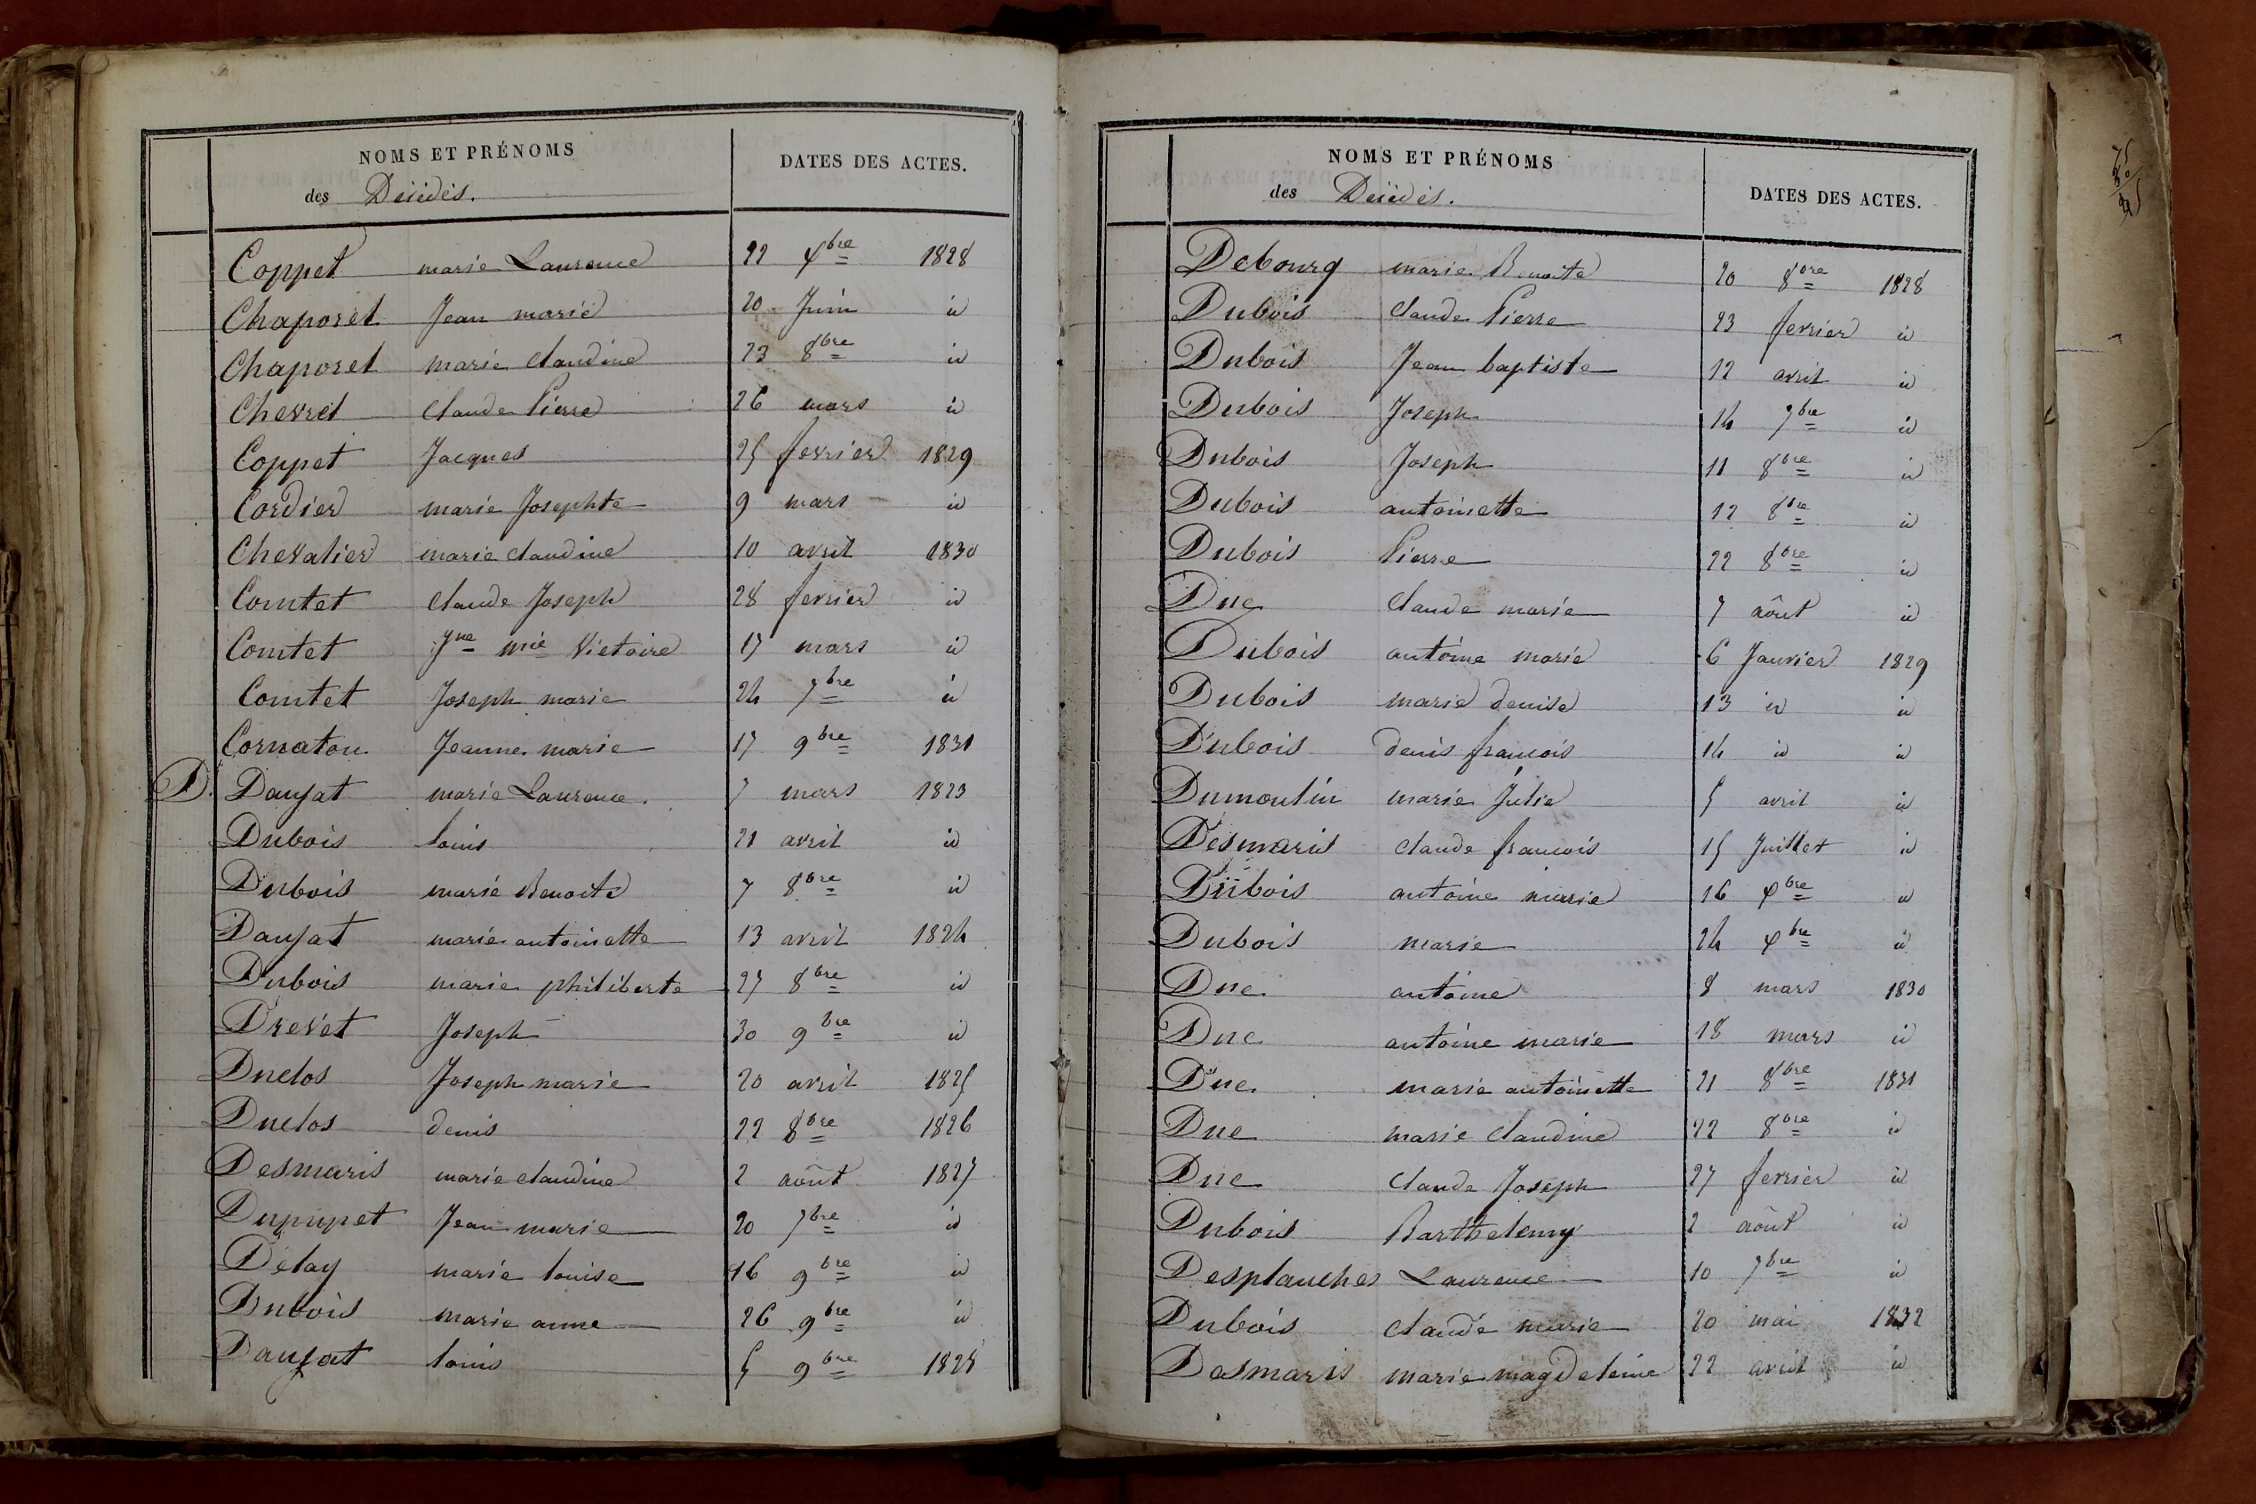 NOMS ET PRÉNOMS
des Décédés.
DATES DES ACTES.
Coppet marie Laurence 22 xbre 1828
Chaporet Jean marie 20 Juin id
Chaporet marie claudine 23 8bre id
Chevret claude Pierre 26 mars id
Coppet Jacques 25 fevrier 1829
Cordier marie Josephte 9 mars id
Chevalier marie claudine 10 avril 1830
Comtet claude Joseph 28 fevrier id
Comtet Jne mie Victoire 17 mars id
Comtet Joseph marie 24 7bre id
Cornaton Jeanne marie 17 9bre 1831
D. Daujat marie Laurence. 7 mars 1823
Dubois louis 21 avril id
Dubois marie Benoite 7 8bre id
Daujat marie antoinette 13 avril 1824
Dubois marie philiberte 27 8bre id
Drevet Joseph 30 9bre id
Duclos Joseph marie 20 avril 1825
Duclos denis 22 8bre 1826
Desmaris marie claudine 2 août 1827
Dupupet Jean marie 20 7bre id
Delay marie louise 16 9bre id
Dubois marie anne 26 9bre id
Daujat louis 5 9bre 1828
NOMS ET PRÉNOMS
des Décédés.
DATES DES ACTES.
Debourg marie Benoite 20 8bre 1828
Dubois claude Pierre 23 fevrier id
Dubois Jean baptiste 12 avril id
Dubois Joseph 14 7bre id
Dubois Joseph 11 8bre id
Dubois antoinette 12 8bre id
Dubois Pierre 22 8bre id
Duc claude marie 7 août id
Dubois antoine marie 6 Janvier 1829
Dubois marie denise 13 id id
Dubois denis francois 14 id id
Dumoulin marie Julie 5 avril id
Desmaris claude francois 15 Juillet id
Dubois antoine marie 16 xbre id
Dubois marie 24 xbre id
Duc antoine 8 mars 1830
Duc antoine marie 18 mars id
Duc marie antoinette 21 8bre 1831
Duc marie claudine 22 8bre id
Duc claude Joseph 27 fevrier id
Dubois Barthelemy 2 août id
Desplanches Laurence 10 7bre id
Dubois claude marie 20 mai 1832
Desmaris marie magdeleine 22 avril id